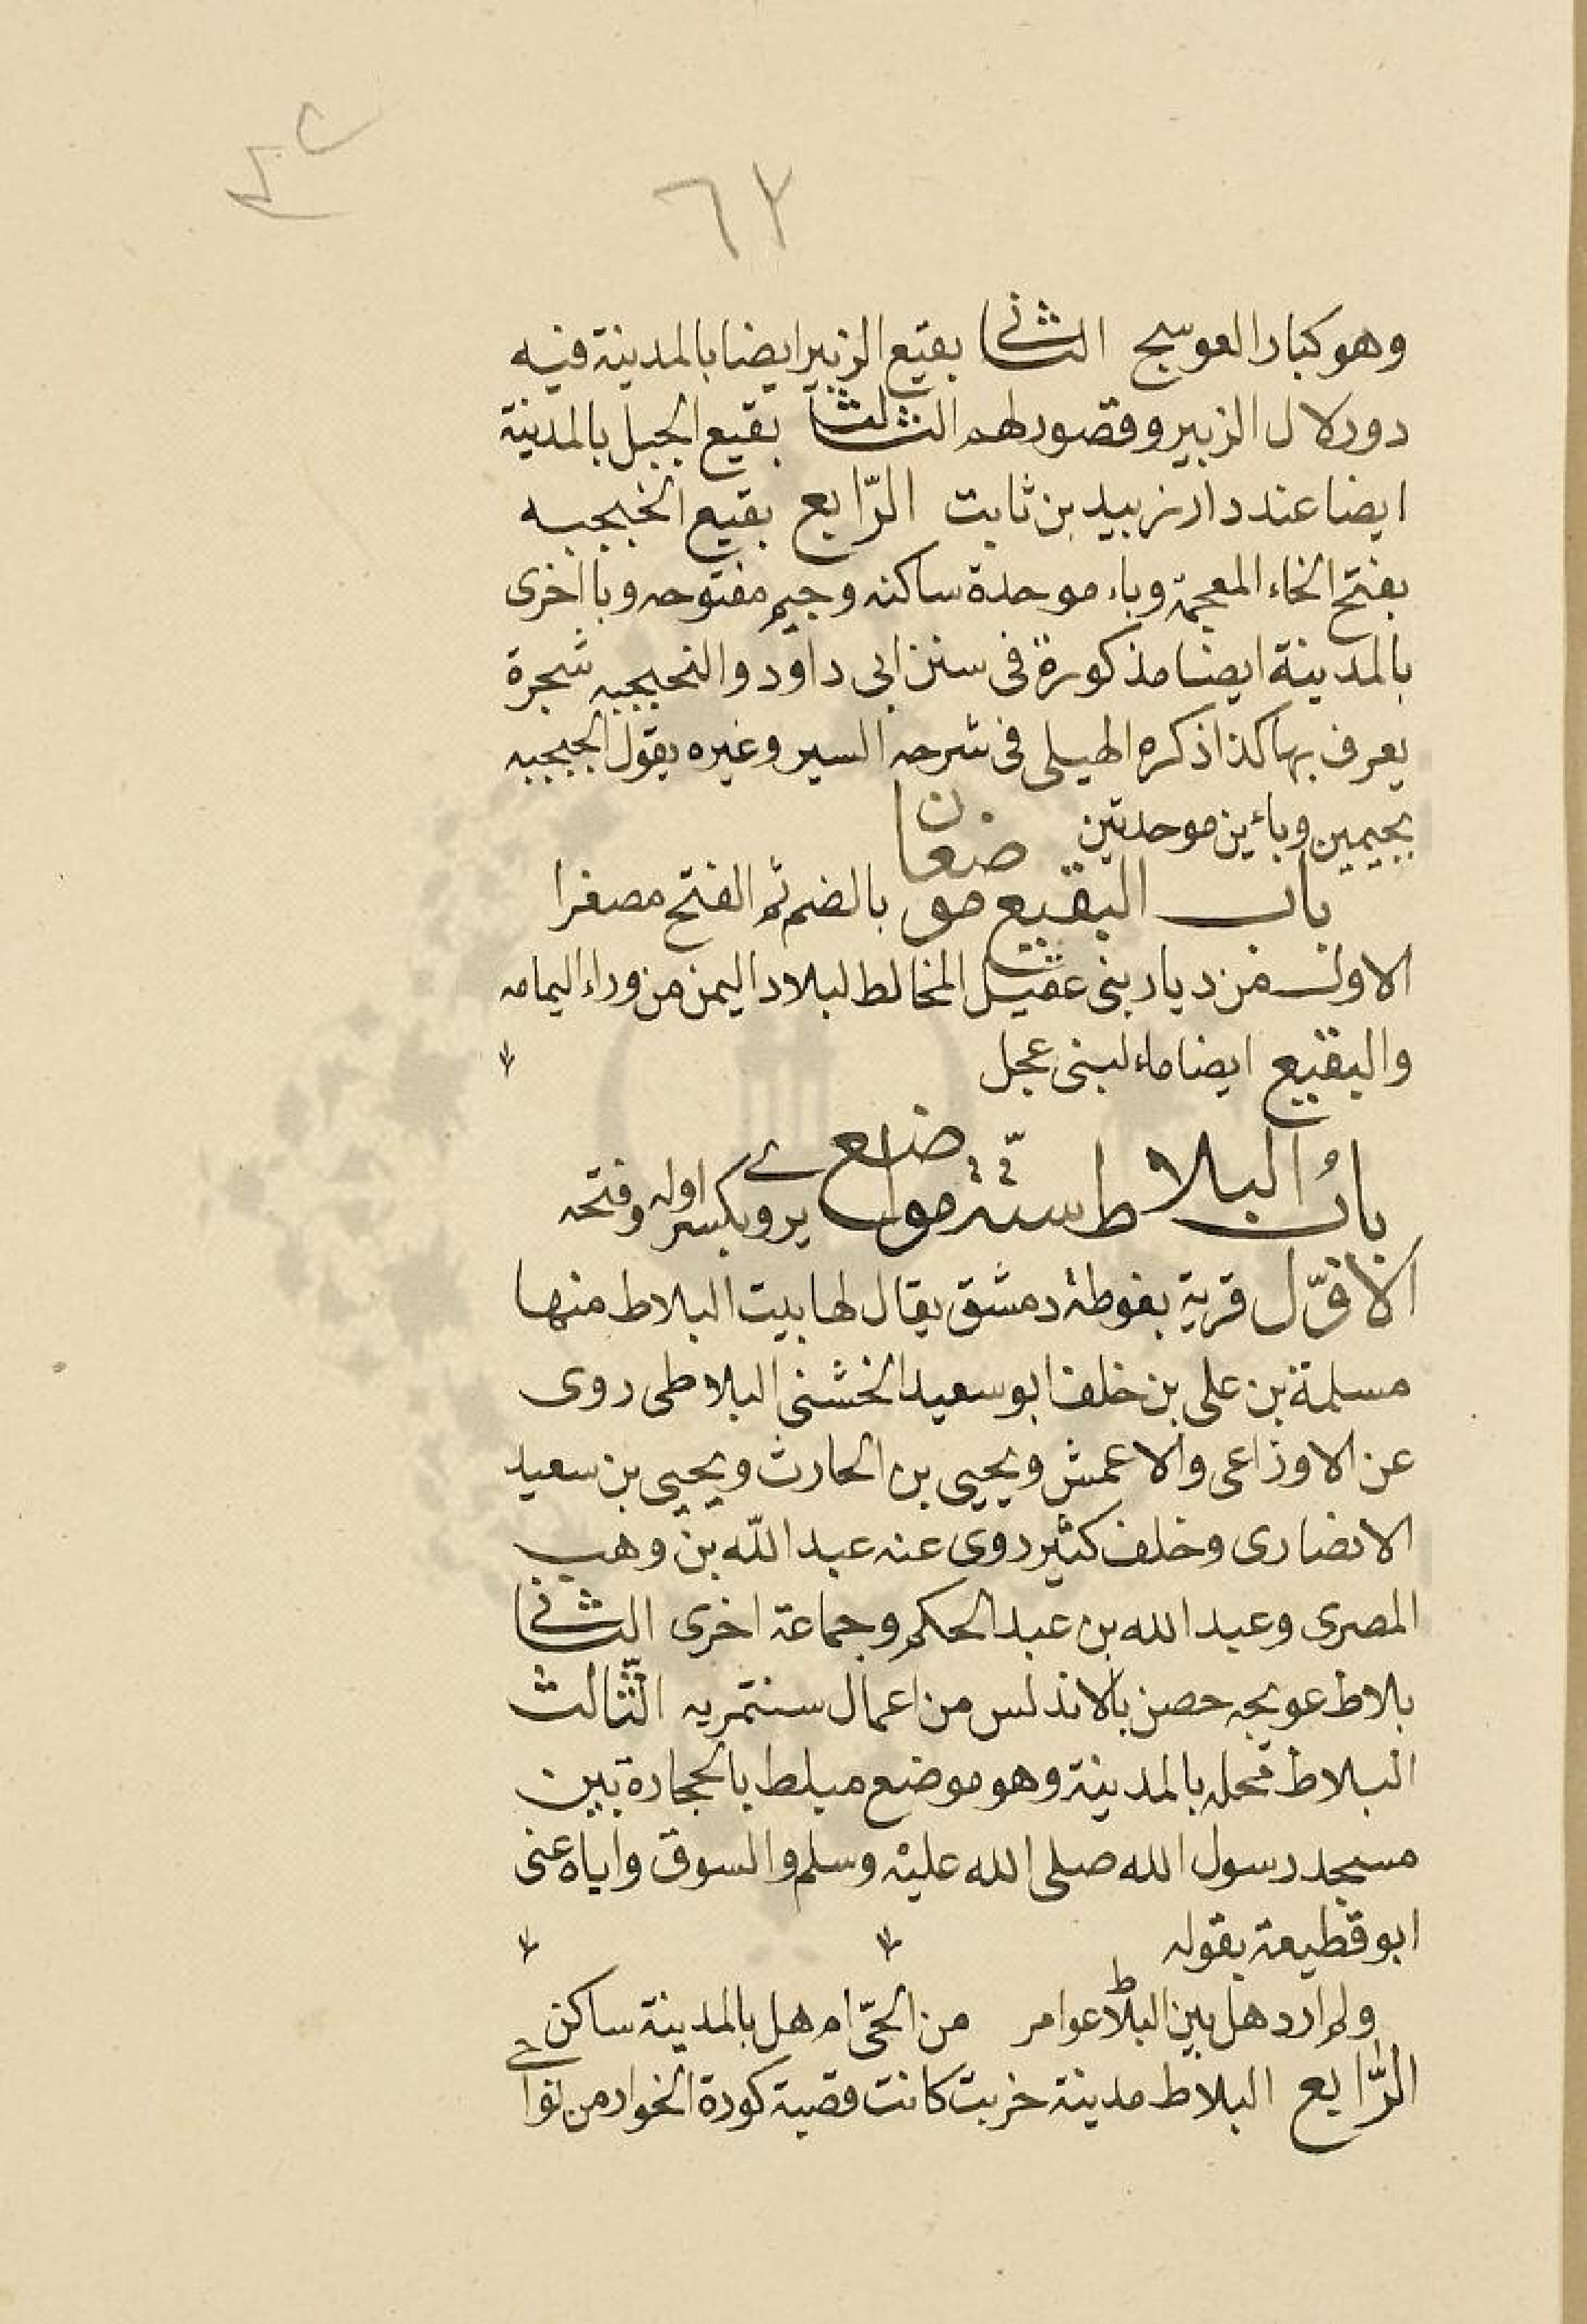 ٦٢
وهو كبار العوسج الثانى بقيع الزبير ايضا بالمدينة فيه
دور لال الزبير وقصور لهم الثالث بقيع الجبل بالمدينة
ايضا عند دار زبيد بن ثابت الرّابع بقيع الخبجبه
بفتح الخاء المعجمة وباء موحدة ساكنه وجيم مفتوحه وبا اخرى
بالمدينة ايضا مذكورة فى سنن ابى داود والخبجبه شجرة
يعرف بها كذا ذكره الهيلى فى شرحه السير وغيره يقول الجبجبه
بجيمين وبائين موحدتين
باب البقيع موضعان بالضم ثم الفتح مصغرا
الاول من ديار بنى عقيل المخالط لبلاد اليمن من وراء اليمامه
والبقيع ايضا ماء لبنى عجل
بابُ البلاط ستّة مواضع يروى بكسر اوله وفتحه
الاوّل قرية بغوطة دمشق يقال لها بيت البلاط منها
مسلمة بن على بن خلف ابو سعيد الخشنى البلاطى روى
عن الاوزاعى والاعمش ويحيى بن الحارث ويحيى بن سعيد
الانصارى وخلف كثير روى عنه عبد اللّه بن وهب
المصرى وعبد الله بن عبد الحكم وجماعة اخرى الثانى
بلاط عوبجه حصن بالاندلس من اعمال سنتمريه الثّالث
البلاط محله بالمدينة وهو موضع مبلط بالحجارة بين
مسجد رسول الله صلى الله عليه وسلم والسوق واياه عنى
ابو قطيعة بقوله
ولم ارد هل بين البلاط عوامر من الحىّ ام هل بالمدينة ساكن
الرّابع البلاط مدينة خربت كانت قصبة كورة الخوار من نواحى